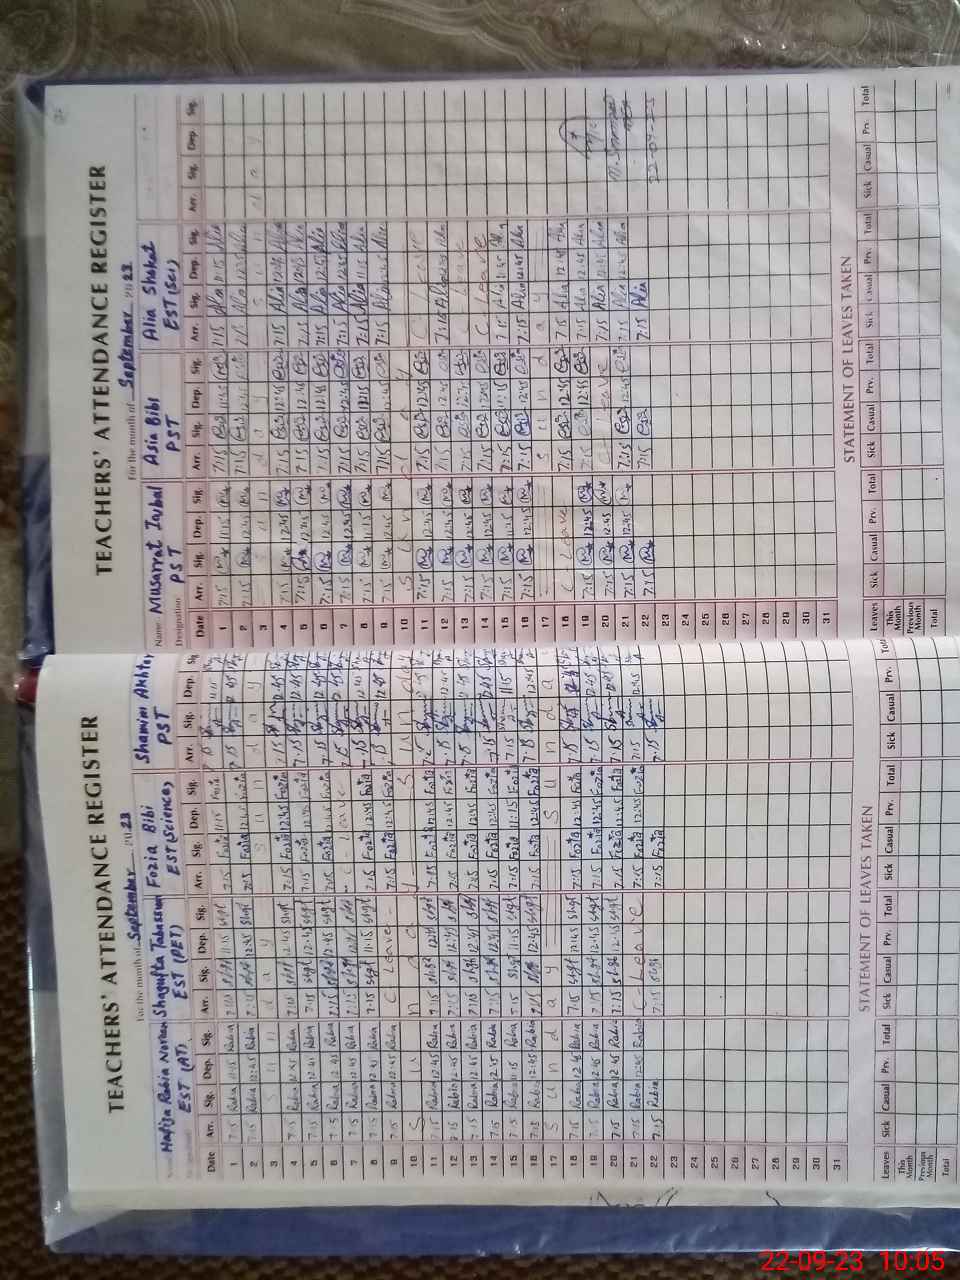 TEACHERS' ATTENDANCE REGISTER
For the month of September 2023
Hafiza Rabia Noreen Shagufta Tabassum Fozia Bibi Shamim Akhtar
EST (AT) EST (PET) EST (Science) PST
Date Arr. Sig. Dep. Sig. Arr. Sig. Dep. Sig. Arr. Sig. Dep. Sig. Arr. Sig. Dep. Sig.
1 7:15 Rabia 11:15 Rabia 7:15 shgf 11:15 shgf 7:15 Fozia 11:15 Fozia 7:15 11:15
2 7:15 Rabia 12:45 Rabia 7:15 shgf 12:45 shgf 7:15 Fozia 12:45 Fozia 7:15 12:45
3 Sunday
4 7:15 Rabia 12:45 Rabia 7:15 shgf 12:45 shgf 7:15 Fozia 12:45 Fozia 7:15 12:45
5 7:15 Rabia 12:45 Rabia 7:15 shgf 12:45 shgf 7:15 Fozia 12:45 Fozia 7:15 12:45
6 7:15 Rabia 12:45 Rabia 7:15 shgf 12:45 shgf 7:15 Fozia 12:45 Fozia 7:15 12:45
7 7:15 Rabia 12:45 Rabia 7:15 shgf 12:45 shgf C - leave 7:15 12:45
8 7:15 Rabia 12:45 Rabia 7:15 shgf 11:15 shgf 7:15 Fozia 12:45 Fozia 7:15 12:45
9 7:15 Rabia 12:45 Rabia C Leave - 7:15 Fozia 12:45 Fozia 7:15 12:45
10 Sunday Sunday
11 7:15 Rabia 12:45 Rabia 7:15 shgf 12:45 shgf 7:15 Fozia 12:45 Fozia 7:15
12 7:15 Rabia 12:45 Rabia 7:15 shgf 12:45 shgf 7:15 Fozia 12:45 Fozia 7:15 12:45
13 7:15 Rabia 12:45 Rabia 7:15 shgf 12:45 shgf 7:15 Fozia 12:45 Fozia 7:15 12:45
14 7:15 Rabia 12:45 Rabia 7:15 shgf 12:45 shgf 7:15 Fozia 12:45 Fozia 7:15 12:45
15 7:15 Rabia 11:15 Rabia 7:15 shgf 11:15 shgf 7:15 Fozia 11:15 Fozia 7:15 11:15
16 7:15 Rabia 12:45 Rabia 7:15 shgf 12:45 shgf 7:15 Fozia 12:45 Fozia 7:15 12:45
17 Sunday Sunday
18 7:15 Rabia 12:45 Rabia 7:15 shgf 12:45 shgf 7:15 Fozia 12:45 Fozia 7:15 12:45
19 7:15 Rabia 12:45 Rabia 7:15 shgf 12:45 shgf 7:15 Fozia 12:45 Fozia 7:15 12:45
20 7:15 Rabia 12:45 Rabia 7:15 shgf 12:45 shgf 7:15 Fozia 12:45 Fozia 7:15 12:45
21 7:15 Rabia 12:45 Rabia C - Leave 7:15 Fozia 12:45 Fozia 7:15 12:45
22 7:15 Rabia 7:15 shgf 7:15 Fozia 7:15
23
24
25
26
27
28
29
30
31
STATEMENT OF LEAVES TAKEN
Leaves Sick Casual Prv. Total Sick Casual Prv. Total Sick Casual Prv. Total Sick Casual Prv. Total
This Month
Previous Month
Total
TEACHERS' ATTENDANCE REGISTER
For the month of September 2023
Name Musarrat Iqbal Asia Bibi Alia Shokat
Designation PST PST EST (Sci)
Date Arr. Sig. Dep. Sig. Arr. Sig. Dep. Sig. Arr. Sig. Dep. Sig. Arr. Sig. Dep. Sig.
1 7:15 11:15 7:15 11:45 7:15 Alia 11:15 Alia
2 7:15 12:45 7:15 12:45 7:15 Alia 12:45 Alia
3 Sunday Sunday
4 7:15 12:45 7:15 12:45 7:15 Alia 12:45 Alia
5 7:15 12:45 7:15 12:45 7:15 Alia 12:45 Alia
6 7:15 12:45 7:15 12:45 7:15 Alia 12:45 Alia
7 7:15 12:45 7:15 12:45 7:15 Alia 12:45 Alia
8 7:15 11:15 7:15 11:15 7:15 Alia 11:15 Alia
9 7:15 12:45 7:15 12:45 7:15 Alia 12:45 Alia
10 Sunday
11 7:15 12:45 7:15 12:45 C Leave
12 7:15 12:45 7:15 12:45 7:15 Alia 12:45 Alia
13 7:15 12:45 7:15 12:45 C Leave
14 7:15 12:45 7:15 12:45 C Leave
15 7:15 11:15 7:15 11:15 7:15 Alia 11:45 Alia
16 7:15 12:45 7:15 12:45 7:15 Alia 12:45 Alia
17 Sunday
18 C Leave 7:15 12:45 7:15 Alia 12:45 Alia
19 7:15 12:45 7:15 12:45 7:15 Alia 12:45 Alia
20 7:15 12:45 C Leave 7:15 Alia 12:45 Alia
21 7:15 12:45 7:15 12:45 7:15 Alia 12:45 Alia
22 7:15 7:15 7:15 Alia 22-09-23
23
24
25
26
27
28
29
30
31
STATEMENT OF LEAVES TAKEN
Leaves Sick Casual Prv. Total Sick Casual Prv. Total Sick Casual Prv. Total Sick Casual Prv. Total
This Month
Previous Month
Total
22-09-23 10:05